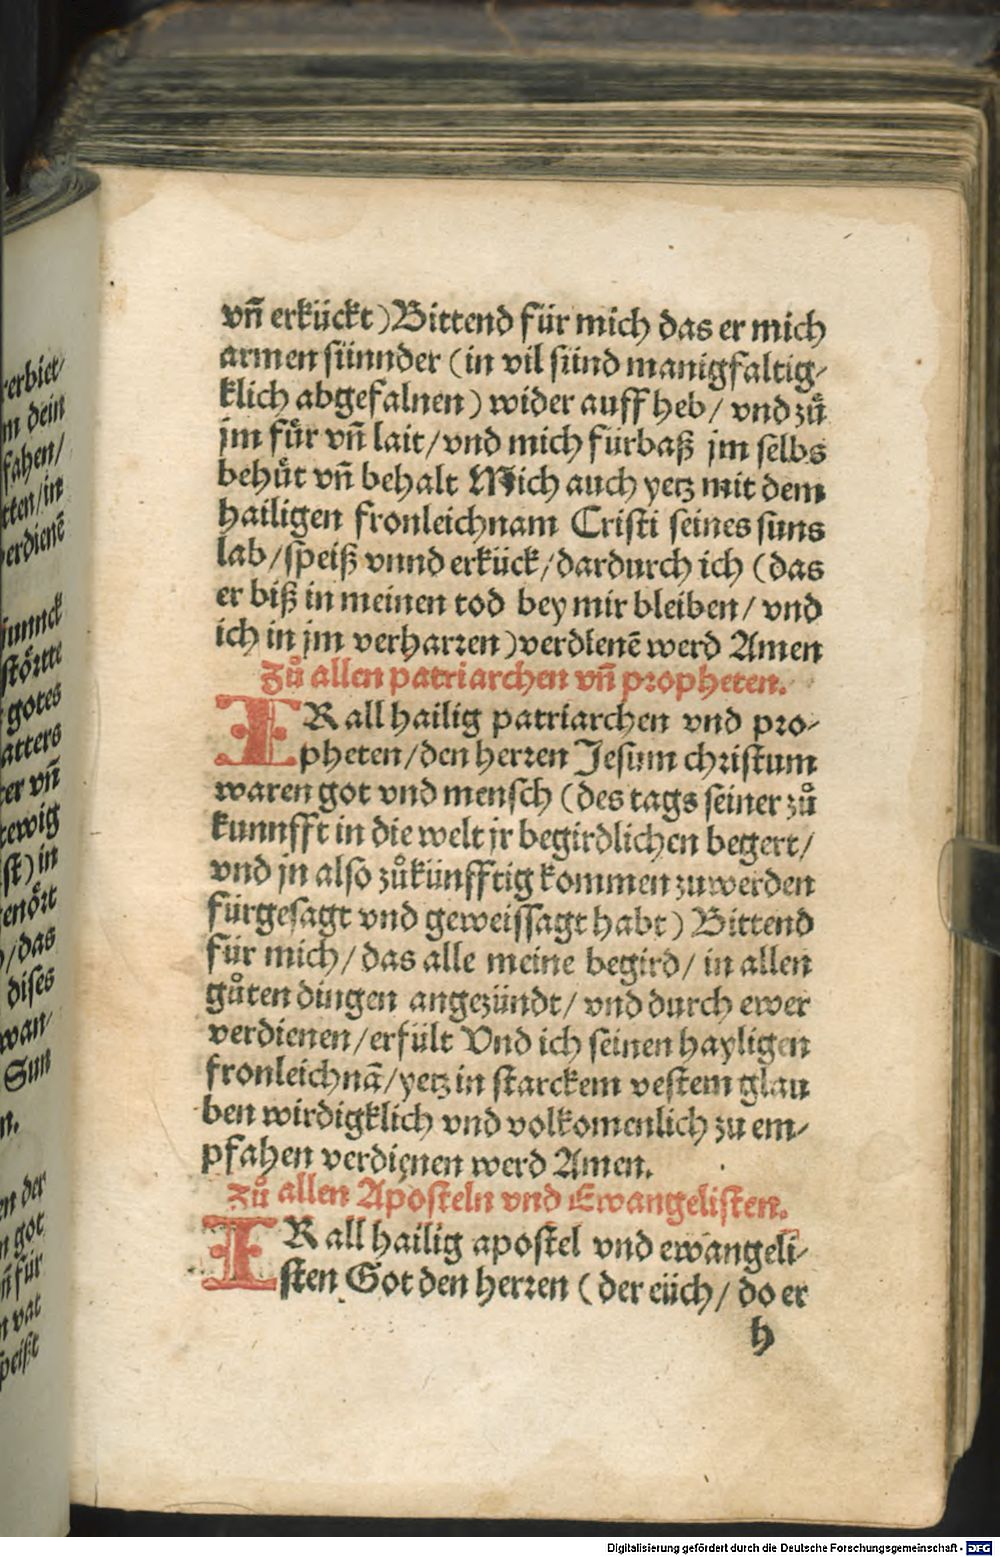 verbiet/
m dein
fahen/
tten/in
verdienē
sunnck
störtte
gotes
atters
er vn̄
ewig
st) in
enört
/das
dises
wan/
Sun
n.
en der
n got
n̄ für
n vat
speißt
vn̄ erkückt) Bittend für mich das er mich
armen sünnder (in vil sünd manigfaltig/
klich abgefalnen) wider auff heb/ vnd zů
jm für vn̄ lait/vnd mich fürbaß jm selbs
behůt vn̄ behalt Mich auch yetz mit dem
hailigen fronleichnam Cristi seines suns
lab/speiß vnnd erkück/dardurch ich (das
er biß in meinen tod bey mir bleiben/ vnd
ich in jm verharren)verdienē werd Amen
Zů allen patriarchen vn̄ propheten.
IR all hailig patriarchen vnd pro/
pheten/den herren Jesum christum
waren got vnd mensch (des tags seiner zů
kunnfft in die welt jr begirdlichen begert/
vnd jn also zůkünfftig kommen zu werden
fürgesagt vnd geweissagt habt) Bittend
für mich/ das alle meine begird/ in allen
gůten dingen angezündt/ vnd durch ewer
verdienen/erfült Vnd ich seinen hayligen
fronleichnā/yetz in starckem vestem glau
ben wirdigklich vnd volkomenlich zu em/
pfahen verdienen werd Amen.
Zů allen Aposteln vnd Ewangelisten.
IR all hailig apostel vnd ewangeli/
sten Got den herren (der eüch/ do er
h
Digitalisierung gefördert durch die Deutsche Forschungsgemeinschaft - DFG